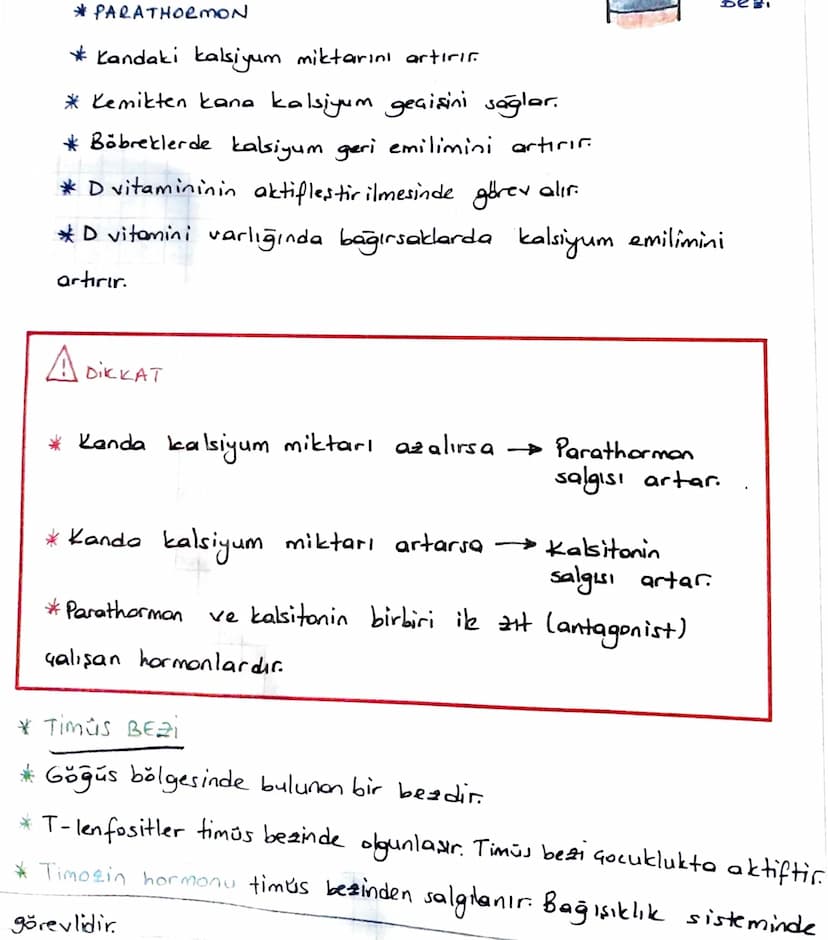 * PARATHORMON
BEZİ
* Kandaki kalsiyum miktarını artırır.
* Kemikten kana kalsiyum geçişini sağlar.
* Böbreklerde kalsiyum geri emilimini artırır.
* D vitamininin aktifleştirilmesinde görev alır.
* D vitamini varlığında bağırsaklarda kalsiyum emilimini
artırır.
⚠ DİKKAT
* Kanda kalsiyum miktarı azalırsa → Parathormon
salgısı artar.
* Kanda kalsiyum miktarı artarsa → Kalsitonin
salgısı artar.
* Parathormon ve kalsitonin birbiri ile zıt (antagonist)
çalışan hormonlardır.
* TİMÜS BEZİ
* Göğüs bölgesinde bulunan bir bezdir.
* T-lenfositler timüs bezinde olgunlaşır. Timüs bezi çocuklukta aktiftir.
* Timozin hormonu timüs bezinden salgılanır. Bağışıklık sisteminde
görevlidir.